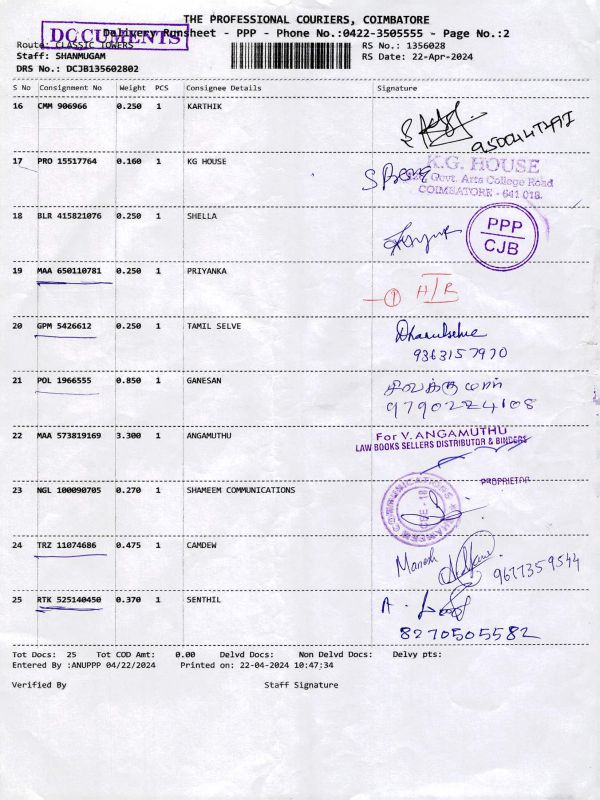 THE PROFESSIONAL COURIERS, COIMBATORE
DOCUMENTS
Delivery Runsheet - PPP - Phone No.:0422-3505555 - Page No.:2
Route: CLASSIC TOWERS
RS No.: 1356028
Staff: SHANMUGAM
RS Date: 22-Apr-2024
DRS No.: DCJB135602802
S No Consignment No Weight PCS Consignee Details Signature
16 CMM 906966 0.250 1 KARTHIK
17 PRO 15517764 0.160 1 KG HOUSE
K.G. HOUSE
Govt. Arts College Road
COIMBATORE - 641 018.
18 BLR 415821076 0.250 1 SHELLA
PPP
CJB
19 MAA 650110781 0.250 1 PRIYANKA
1 H/R
20 GPM 5426612 0.250 1 TAMIL SELVE
9363157970
21 POL 1966555 0.850 1 GANESAN
9790224108
22 MAA 573819169 3.300 1 ANGAMUTHU
For V. ANGAMUTHU
LAW BOOKS SELLERS DISTRIBUTOR & BINDERS
PROPRIETAR
23 NGL 100090705 0.270 1 SHAMEEM COMMUNICATIONS
SHAMEEM COMMUNICATIONS
24 TRZ 11074686 0.475 1 CAMDEW
Manesh
9677359544
25 RTK 525140450 0.370 1 SENTHIL
8270505582
Tot Docs: 25 Tot COD Amt: 0.00 Delvd Docs: Non Delvd Docs: Delvy pts:
Entered By :ANUPPP 04/22/2024 Printed on: 22-04-2024 10:47:34
Verified By Staff Signature